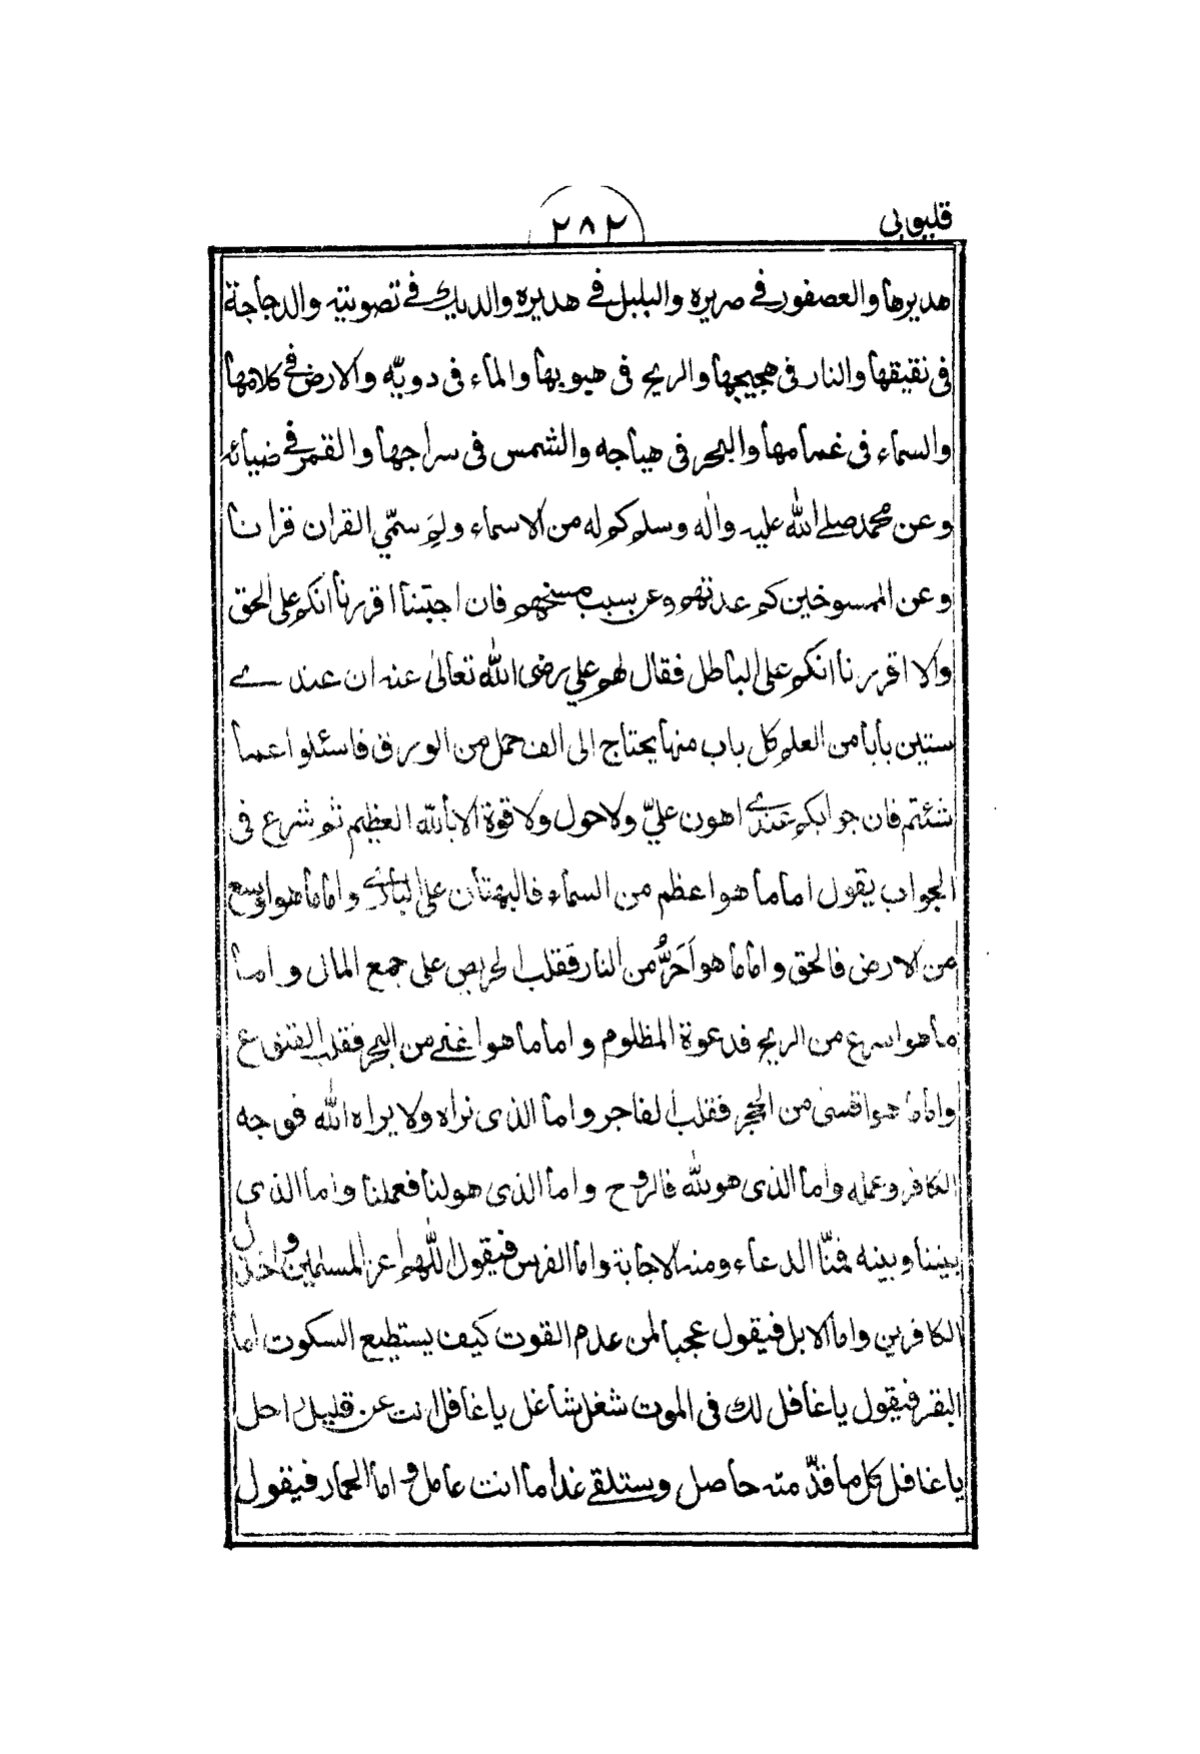 قليوبي
٢٨٢
هديرها والعصفور في صريره والبلبل في هديره والديك في تصويته والدجاجة
فى نقيقها والنار فى هجيجها والريح فى هبوبها والماء فى دويّه والارض فى كلامها
والسماء فى غمامها والبحر فى هياجه والشمس فى سراجها والقمر في ضيائه
وعن محمد صلے الله عليه واٰله وسلم كم له من الاسماء ولِمَ سمّي القران قرانا
وعن الممسوخين كم عدتهم وعن سبب مسخهم فان اجبتنا اقررنا انكم على الحق
والا اقررنا انكم على الباطل فقال لهم علي رضى الله تعالىٰ عنه ان عندے
ستين بابا من العلم كل باب منها يحتاج الى الف حمل من الورق فاسئلوا عما
شئتم فان جوابكم عندے اهون عليّ ولا حول ولا قوة الا بالله العظيم ثم شرع فى
الجواب يقول اما ما هو اعظم من السماء فالبهتان على البارے واما ما هو اوسع
من الارض فالحق واما ما هو اَحَرُّ من النار فقلب الحريص على جمع المال واما
ما هو اسرع من الريح فدعوة المظلوم واما ما هو اغنے من البحر فقلب القنوع
واما ما هو اقسىٰ من الحجر فقلب الفاجر واما الذى نراه ولا يراه الله فوجه
الكافر وعمله واما الذى هو لله فالروح واما الذى هو لنا فعملنا واما الذى
بيننا وبينه فمنّا الدعاء ومنه الاجابة واما الفرس فيقول اللّٰهم اعز المسلمين واخذل
الكافرين واما الابل فيقول عجبا لمن عدم القوت كيف يستطيع السكوت اما
البقر فيقول يا غافل لك فى الموت شغل شاغل يا غافل انت عن قليل راحل
يا غافل كل ما قدّمته حاصل وستلقے غدا ما انت عامل واما الحمار فيقول